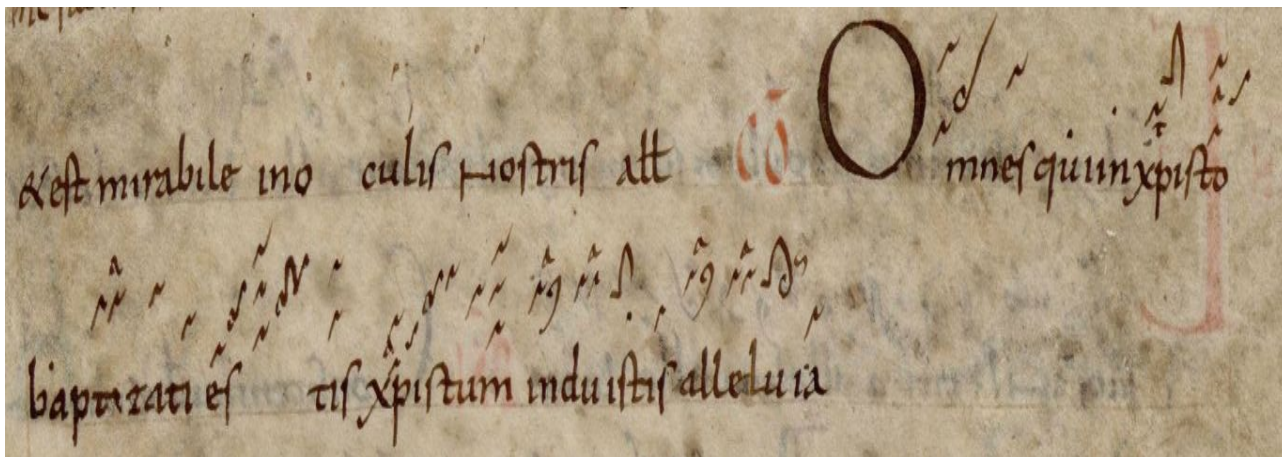 &est mirabile ino culis Nostris all CŌ Omnes qui in xpisto
baptizati es tis xpistum induistis alleluia